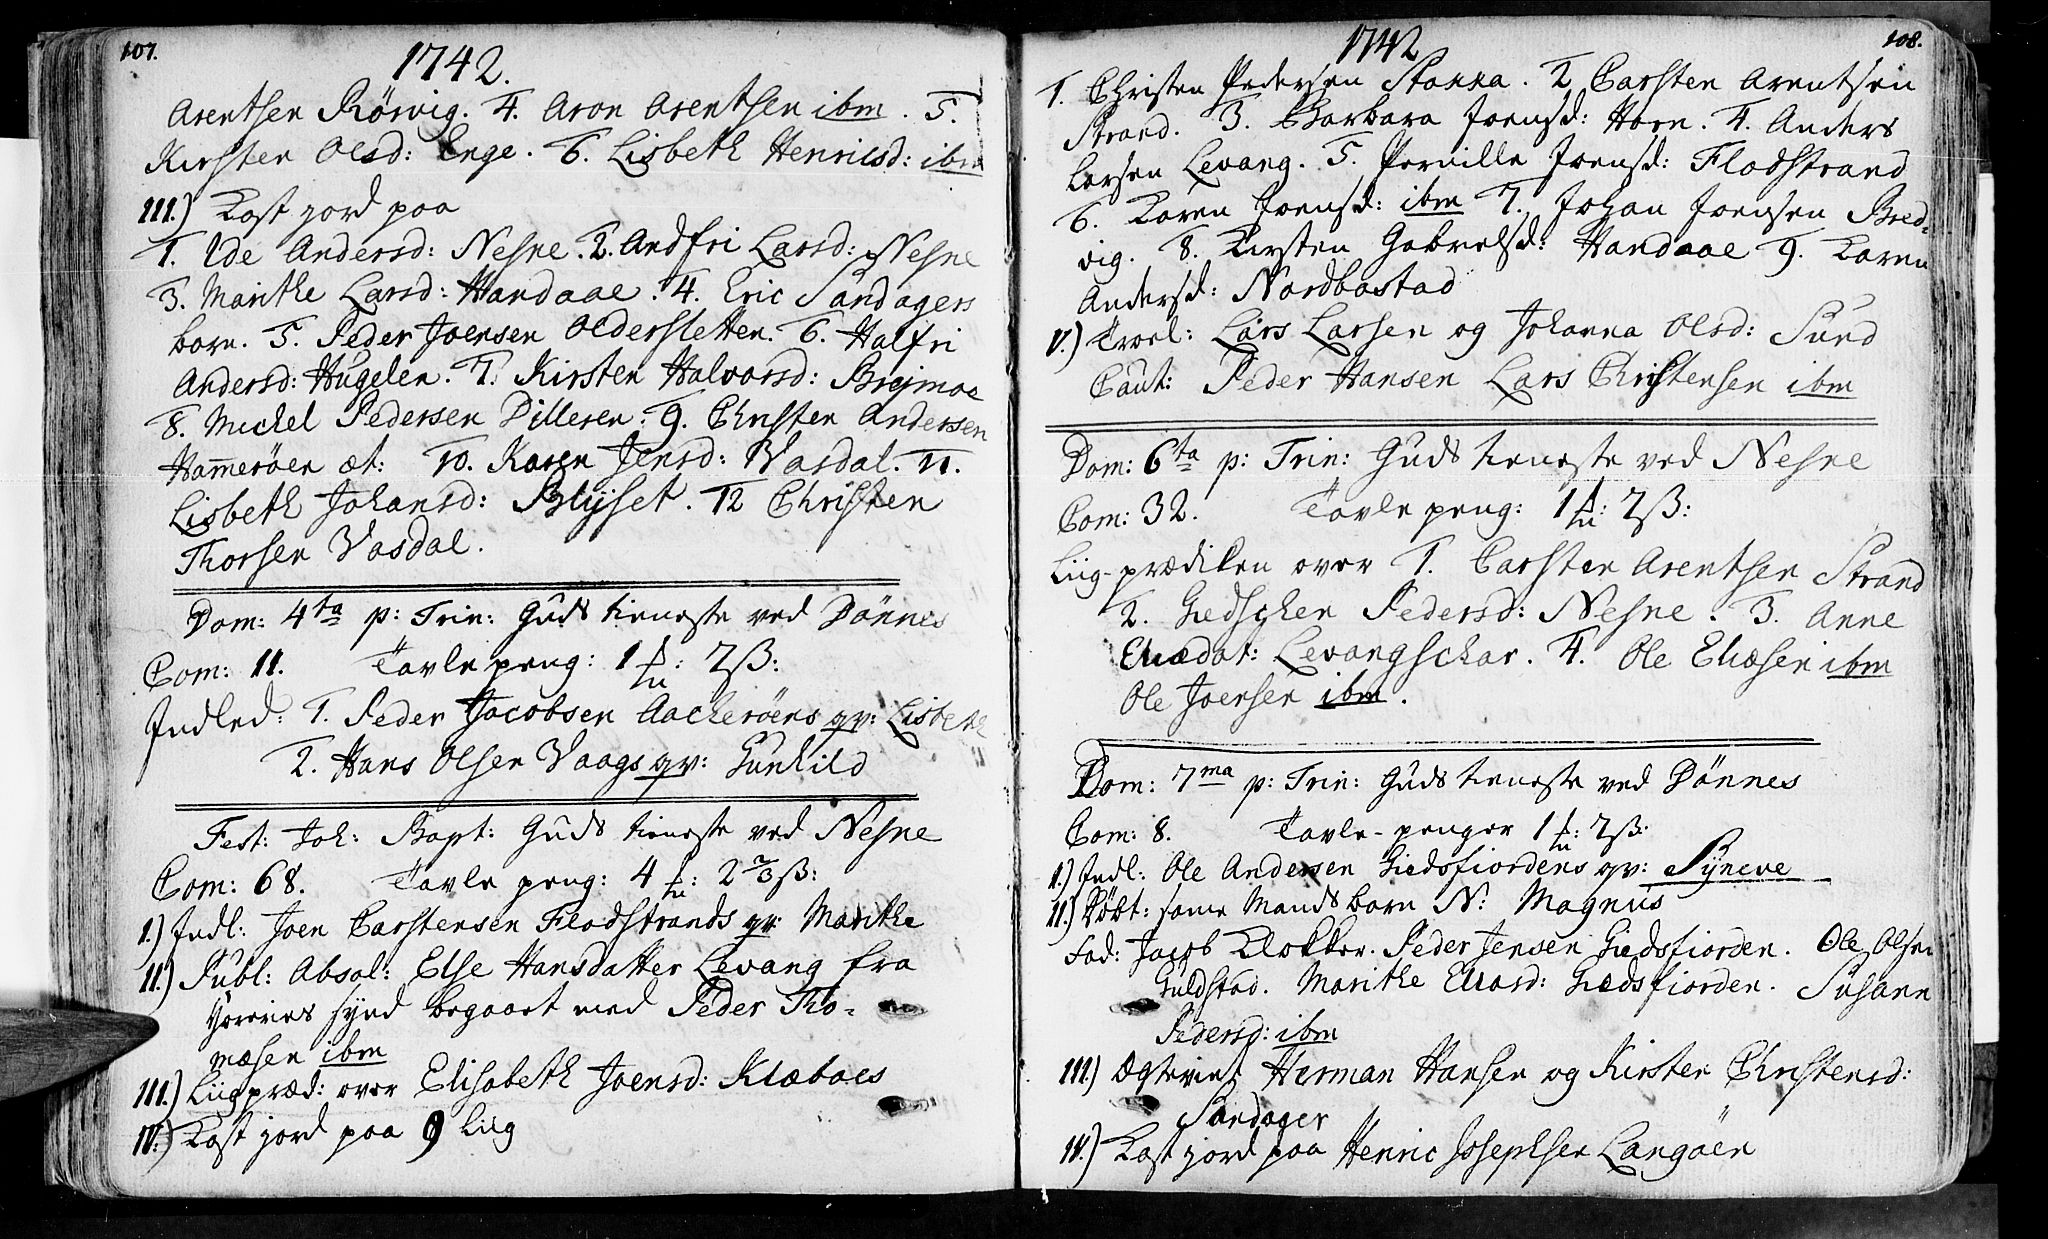 107.
1742.
Arentsen Rörvig. 4. Aron Arentsen ibm. 5.
Kirsten Olsd: Enge. 6. Lisbeth Henricsd: ibm
III.) Kast jord paa
1. Ide Andersd: Nesne. 2. Andfri Larsd: Nesne
3. Marithe Larsd: Handaae. 4. Eric Sandagers
barn. 5. Peder Joensen Oldersletten. 6. Halfri
Andersd: Hugelen. 7. Kirsten Halvorsd: Brejmoe
8. Michel Pedersen Dilleren. 9. Christen Andersen
Hameröen æt: 10. Karen Jensd: Vasdal. 11.
Lisbeth Johansd: Blijset. 12 Christen
Thorsen Vasdal.
Dom: 4ta p: Trin: Guds tieneste ved Dönnes
Com: 11. Tavle peng: 1 : 7ß:
Indled: 1. Peder Jacobsen Aackeröens qv: Lisbeth
2. Hans Olsen Vaags qv: Gunhild
Fest: Joh: Bapt: Guds tieneste ved Nesne
Com: 68. Tavle peng: 4 : 2 2/3 ß:
I.) Indl: Joen Carstensen Flodstrands qv: Marithe
II.) Publ: Absol: Else Hansdatter Levang fra
Horeries synd begaaet med Peder Tho-
mæsen ibm
III.) Liigpræd: over Elisabeth Joensd: Klæboes
IV.) Kast jord paa 9 Liig
108.
1742
1. Christen Pedersen Stokka. 2 Carsten Arentsen
Strand. 3. Barbara Joensd: Horn. 4. Anders
Larsen Levang. 5. Pernille Joensd: Flodstrand
6. Karen Joensd: ibm 7. Johan Joensen Bred-
vig. 8. Kirsten Gabrelsd: Handaae 9. Karen
Andersd: Nordbostad
V.) Troel: Lars Larsen og Johanna Olsd: Sund
Caut: Peder Hansen Lars Christensen ibm
Dom: 6ta p: Trin: Guds tieneste ved Nesne
Com: 32. Tavle peng: 1 : 7ß:
Liig-prædiken over 1. Carsten Arentsen Strand
2. Giedschen Pedersd: Nesne. 3. Anne
Eliædat: Levangschar. 4. Ole Eliæsen ibm
Ole Joensen ibm.
Dom: 7ma p: Trin: Guds tieneste ved Dönnes
Com: 8. Tavle-penger 1 : 7ß:
I.) Indl: Ole Andersen Giedsfiordens qv: Syneve
II.) Döbt: same Mands barn N: Magnus
Fad: Jacob Klokker. Peder Jensen Giedsfiorden. Ole Olsen
Guldstad. Marithe Eliasd: Giedsfiorden. Susann
Pedersd: ibm
III.) Ægteviet Herman Hansen og Kirsten Christensd:
Sandager
IV.) Kast jord paa Henric Josephsen Langöen